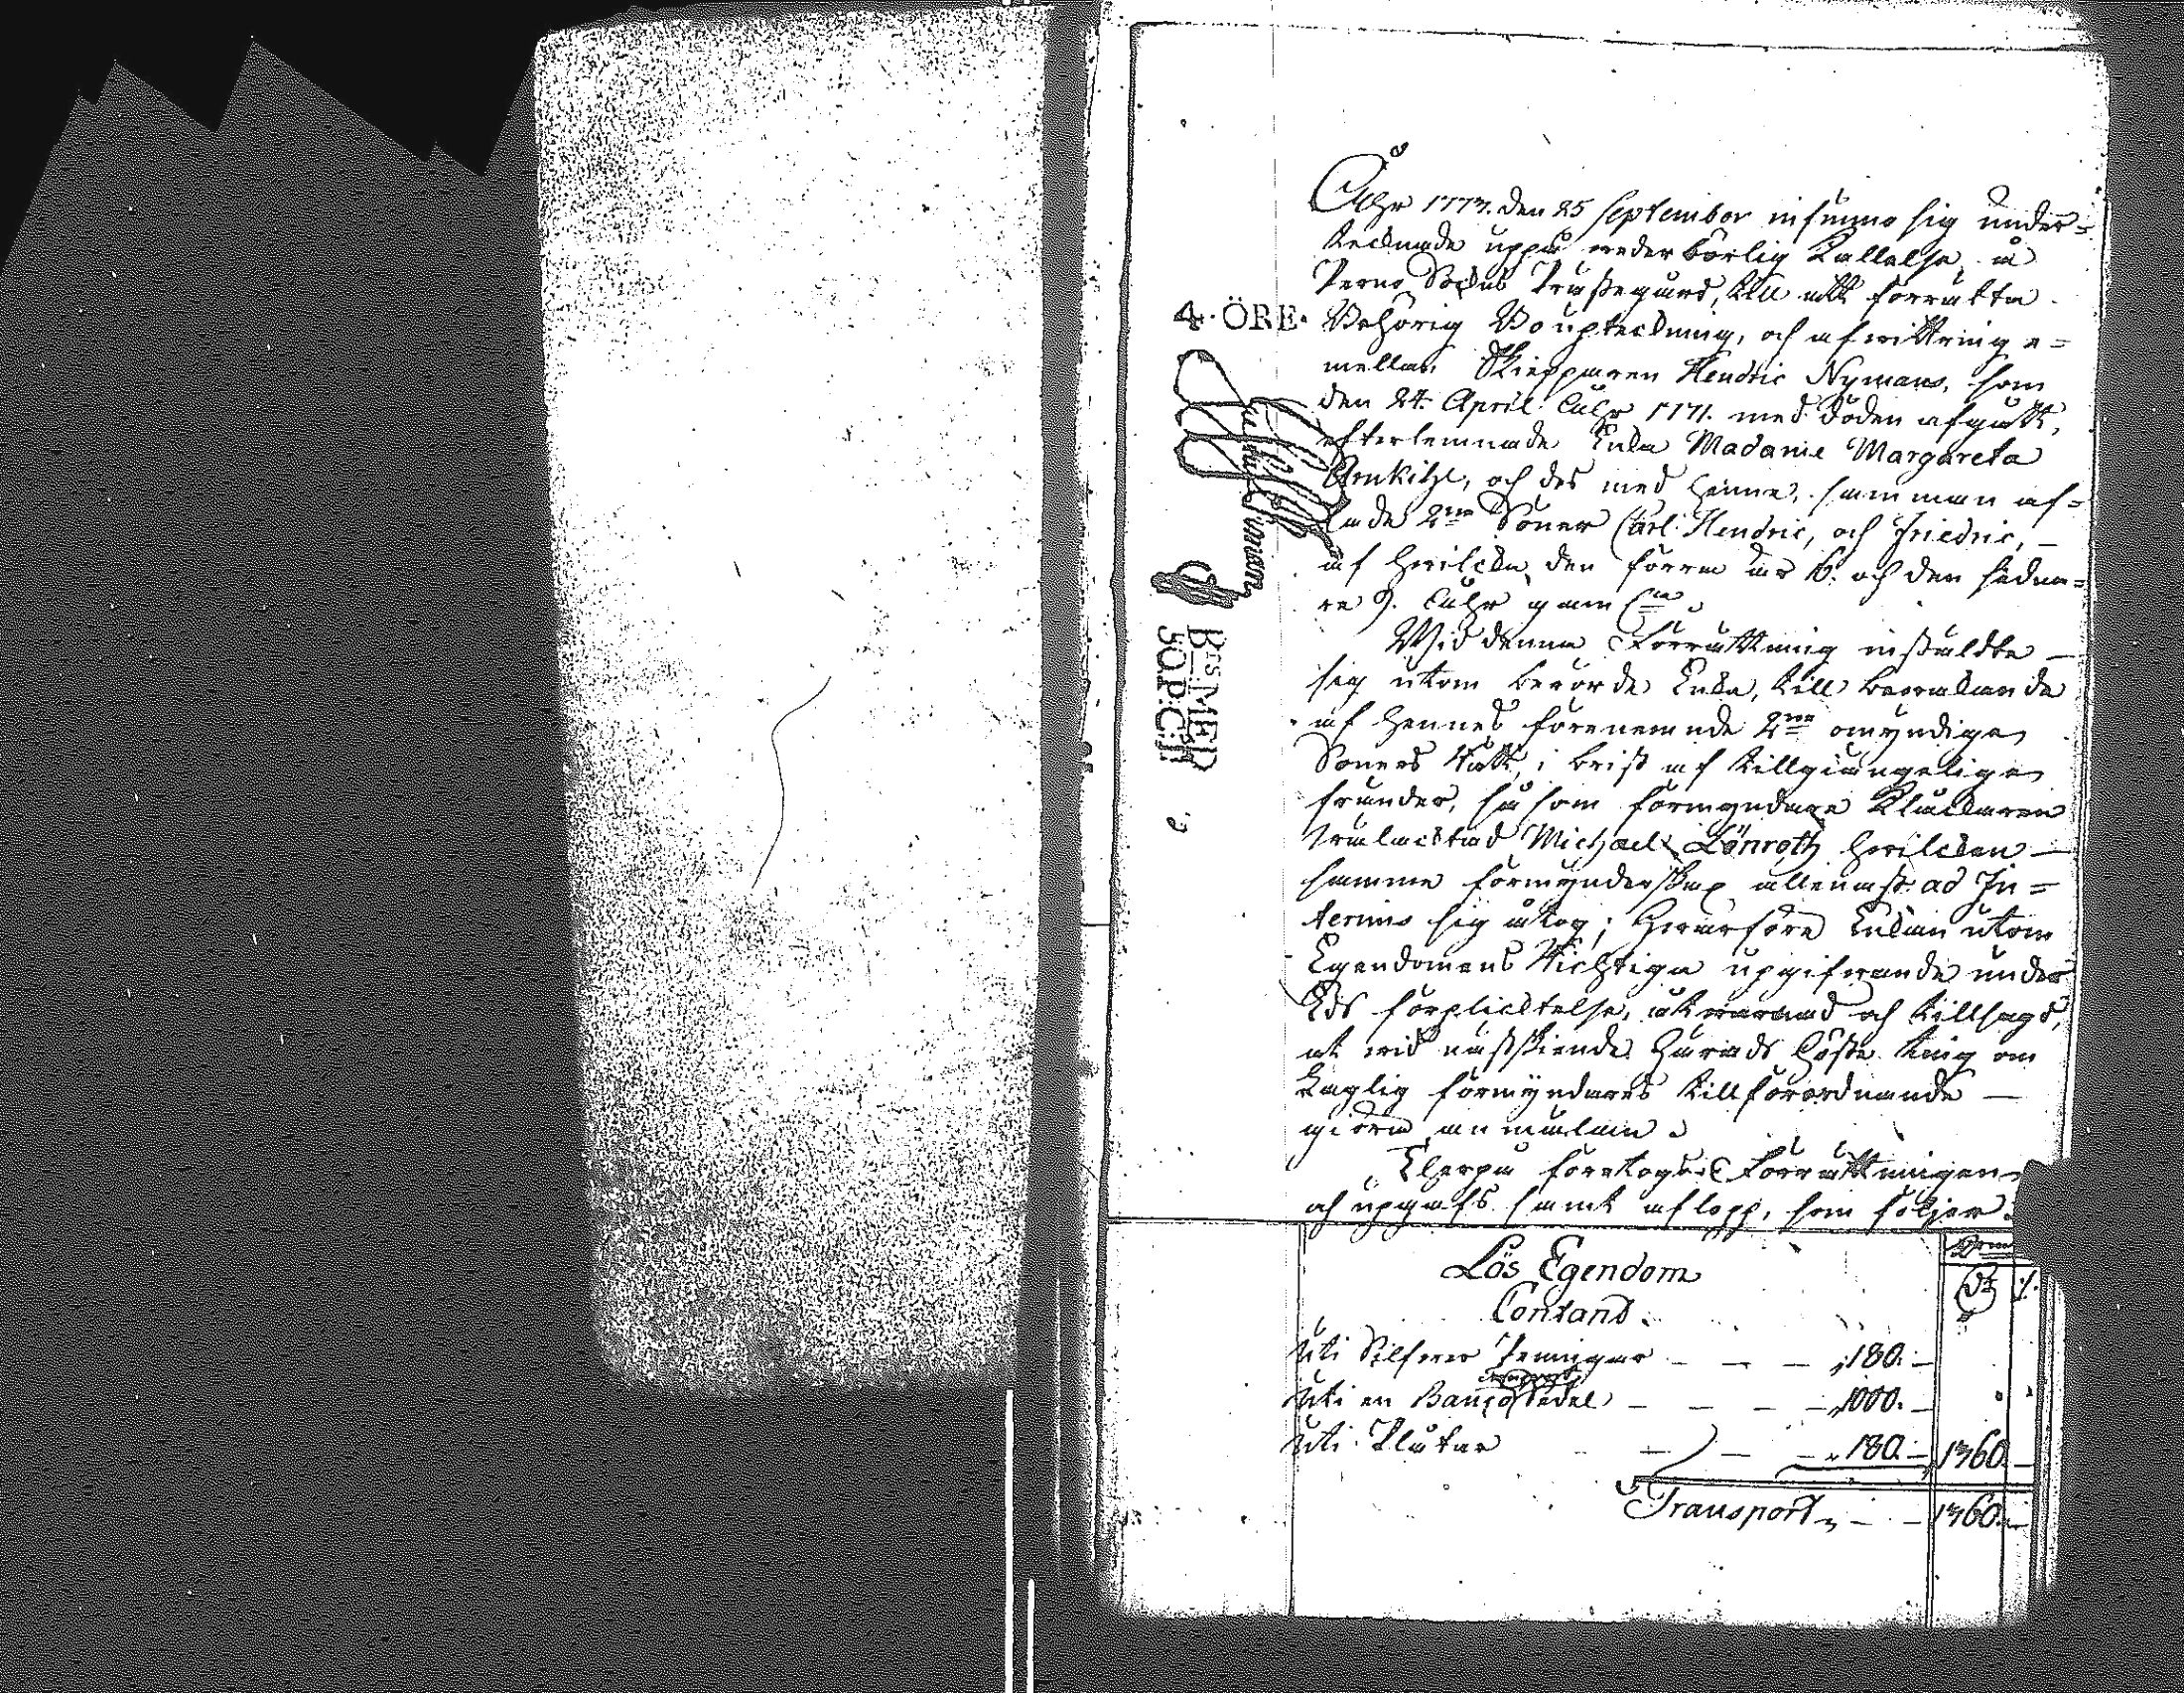 Åhr 1773. den 25 September infunno sig under=
tecknade uppå wederbörlig Kallelse, å
Perno Sokns Prästegård, till att förrätta
4·ÖRE·
Behörig Bouptekning, och afwittring e=
mellan Skiepparen Hendric Nymans, som
den 24. April Åhr 1771. med döden afgått,
efterlemnade Enka Madame Margareta
och des med henne samman af=
lade 2ne Söner Carl Hendric, och Friedric, —
af hwilcka den förra är 16. och den sedna=
re 9. Åhr gamla.
Wid denna Förrättning instäldte —
sig utom berörde Enka, till bewakande
af hennes förenemnde 2ne omyndige
Söners Rätt, i brist af tillgiängelige
fränder, så som förmyndare Klåckaren
Michael Lönroth hwilcken —
samme förmynderskap allenast ad In=
terims sig åtog; hwarföre Enkan utom
Egendomens Richtiga upgifwande under
Eds förplicktelse, åtwarnad och tillsagd,
at wid nästskiende Härads Höste ting om
laglig förmyndares tillförordnande —
giöra anmälan.
Härpå företogs Förrättningen
och upgafs samt aflopp, som följer.
Lös Egendom
Contant.
Uti Silfwer Penningar — — — 180. —
Uti en Banco Sedel — — — 1000. —
Uti Plåtar — — — 180. — 1360. —
Transport — — 1360. —